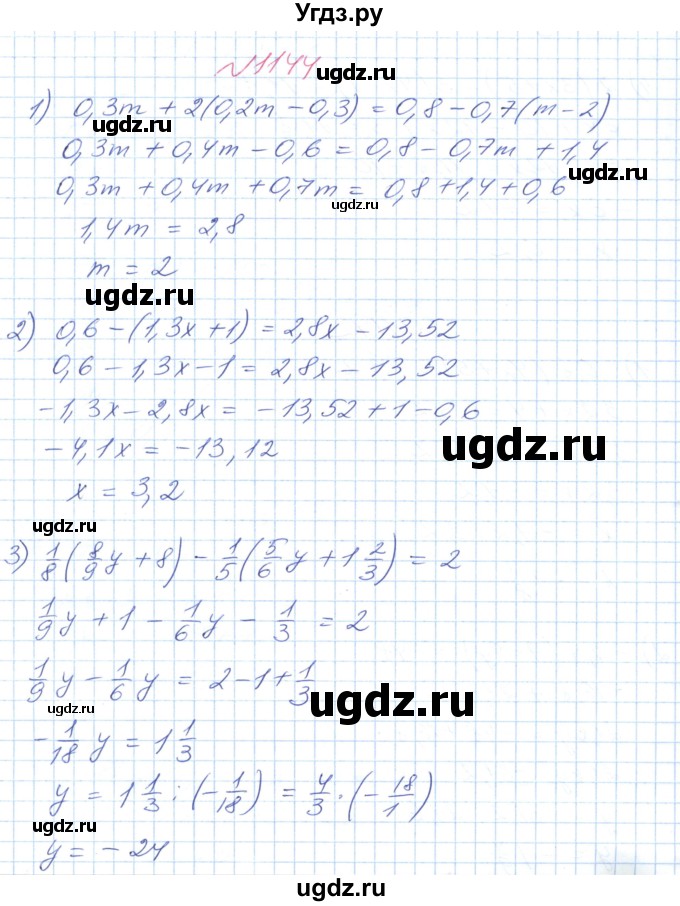 Угдз.ру
№1144
ugdz.ru
1) 0,3m + 2(0,2m - 0,3) = 0,8 - 0,7(m - 2)
0,3m + 0,4m - 0,6 = 0,8 - 0,7m + 1,4
ugdz.ru
0,3m + 0,4m + 0,7m = 0,8 + 1,4 + 0,6
ugdz.ru
1,4m = 2,8
m = 2
ugdz.ru
2) 0,6 - (1,3x + 1) = 2,8x - 13,52
0,6 - 1,3x - 1 = 2,8x - 13,52
-1,3x - 2,8x = -13,52 + 1 - 0,6
ugdz.ru
-4,1x = -13,12
x = 3,2
ugdz.ru
3) 1/8(8/9y + 8) - 1/5(5/6y + 1 2/3) = 2
1/9y + 1 - 1/6y - 1/3 = 2
1/9y - 1/6y = 2 - 1 + 1/3
ugdz.ru
ugdz.ru
-1/18y = 1 1/3
y = 1 1/3 : (-1/18) = 4/3 · (-18/1)
ugdz.ru
y = -24
ugdz.ru